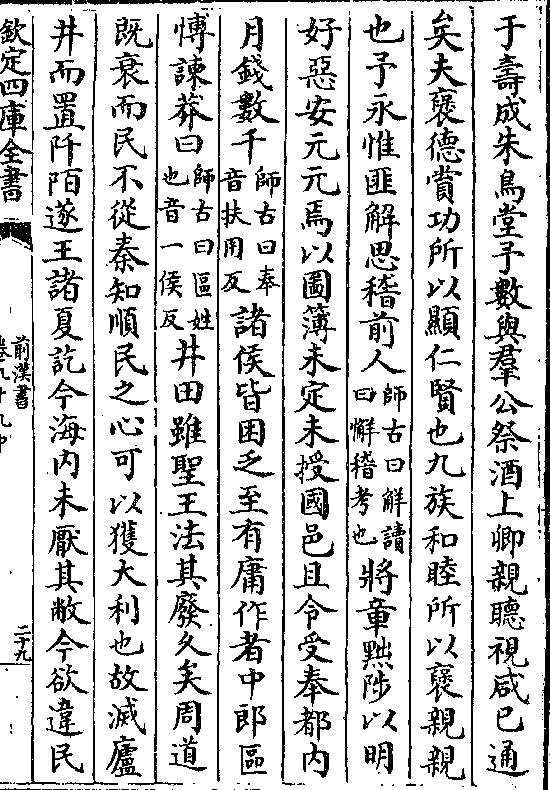 于壽成朱鳥堂予數與羣公祭酒上卿親聽視咸已通
矣夫襃德賞功所以顯仁賢也九族和睦所以襃親親
也予永惟匪解思稽前人師古曰解讀曰懈稽考也將章黜陟以明
好惡安元元焉以圖簿未定未授國邑且令受奉都內
月錢數千師古曰奉音扶用反諸侯皆困乏至有庸作者中郎區
博諫莽曰師古曰區姓也音一侯反井田雖聖王法其廢久矣周道
既衰而民不從秦知順民之心可以獲大利也故滅廬
井而置阡陌遂王諸夏訖今海內未厭其敝今欲違民
欽定四庫全書
前漢書
卷九十九中
二十九